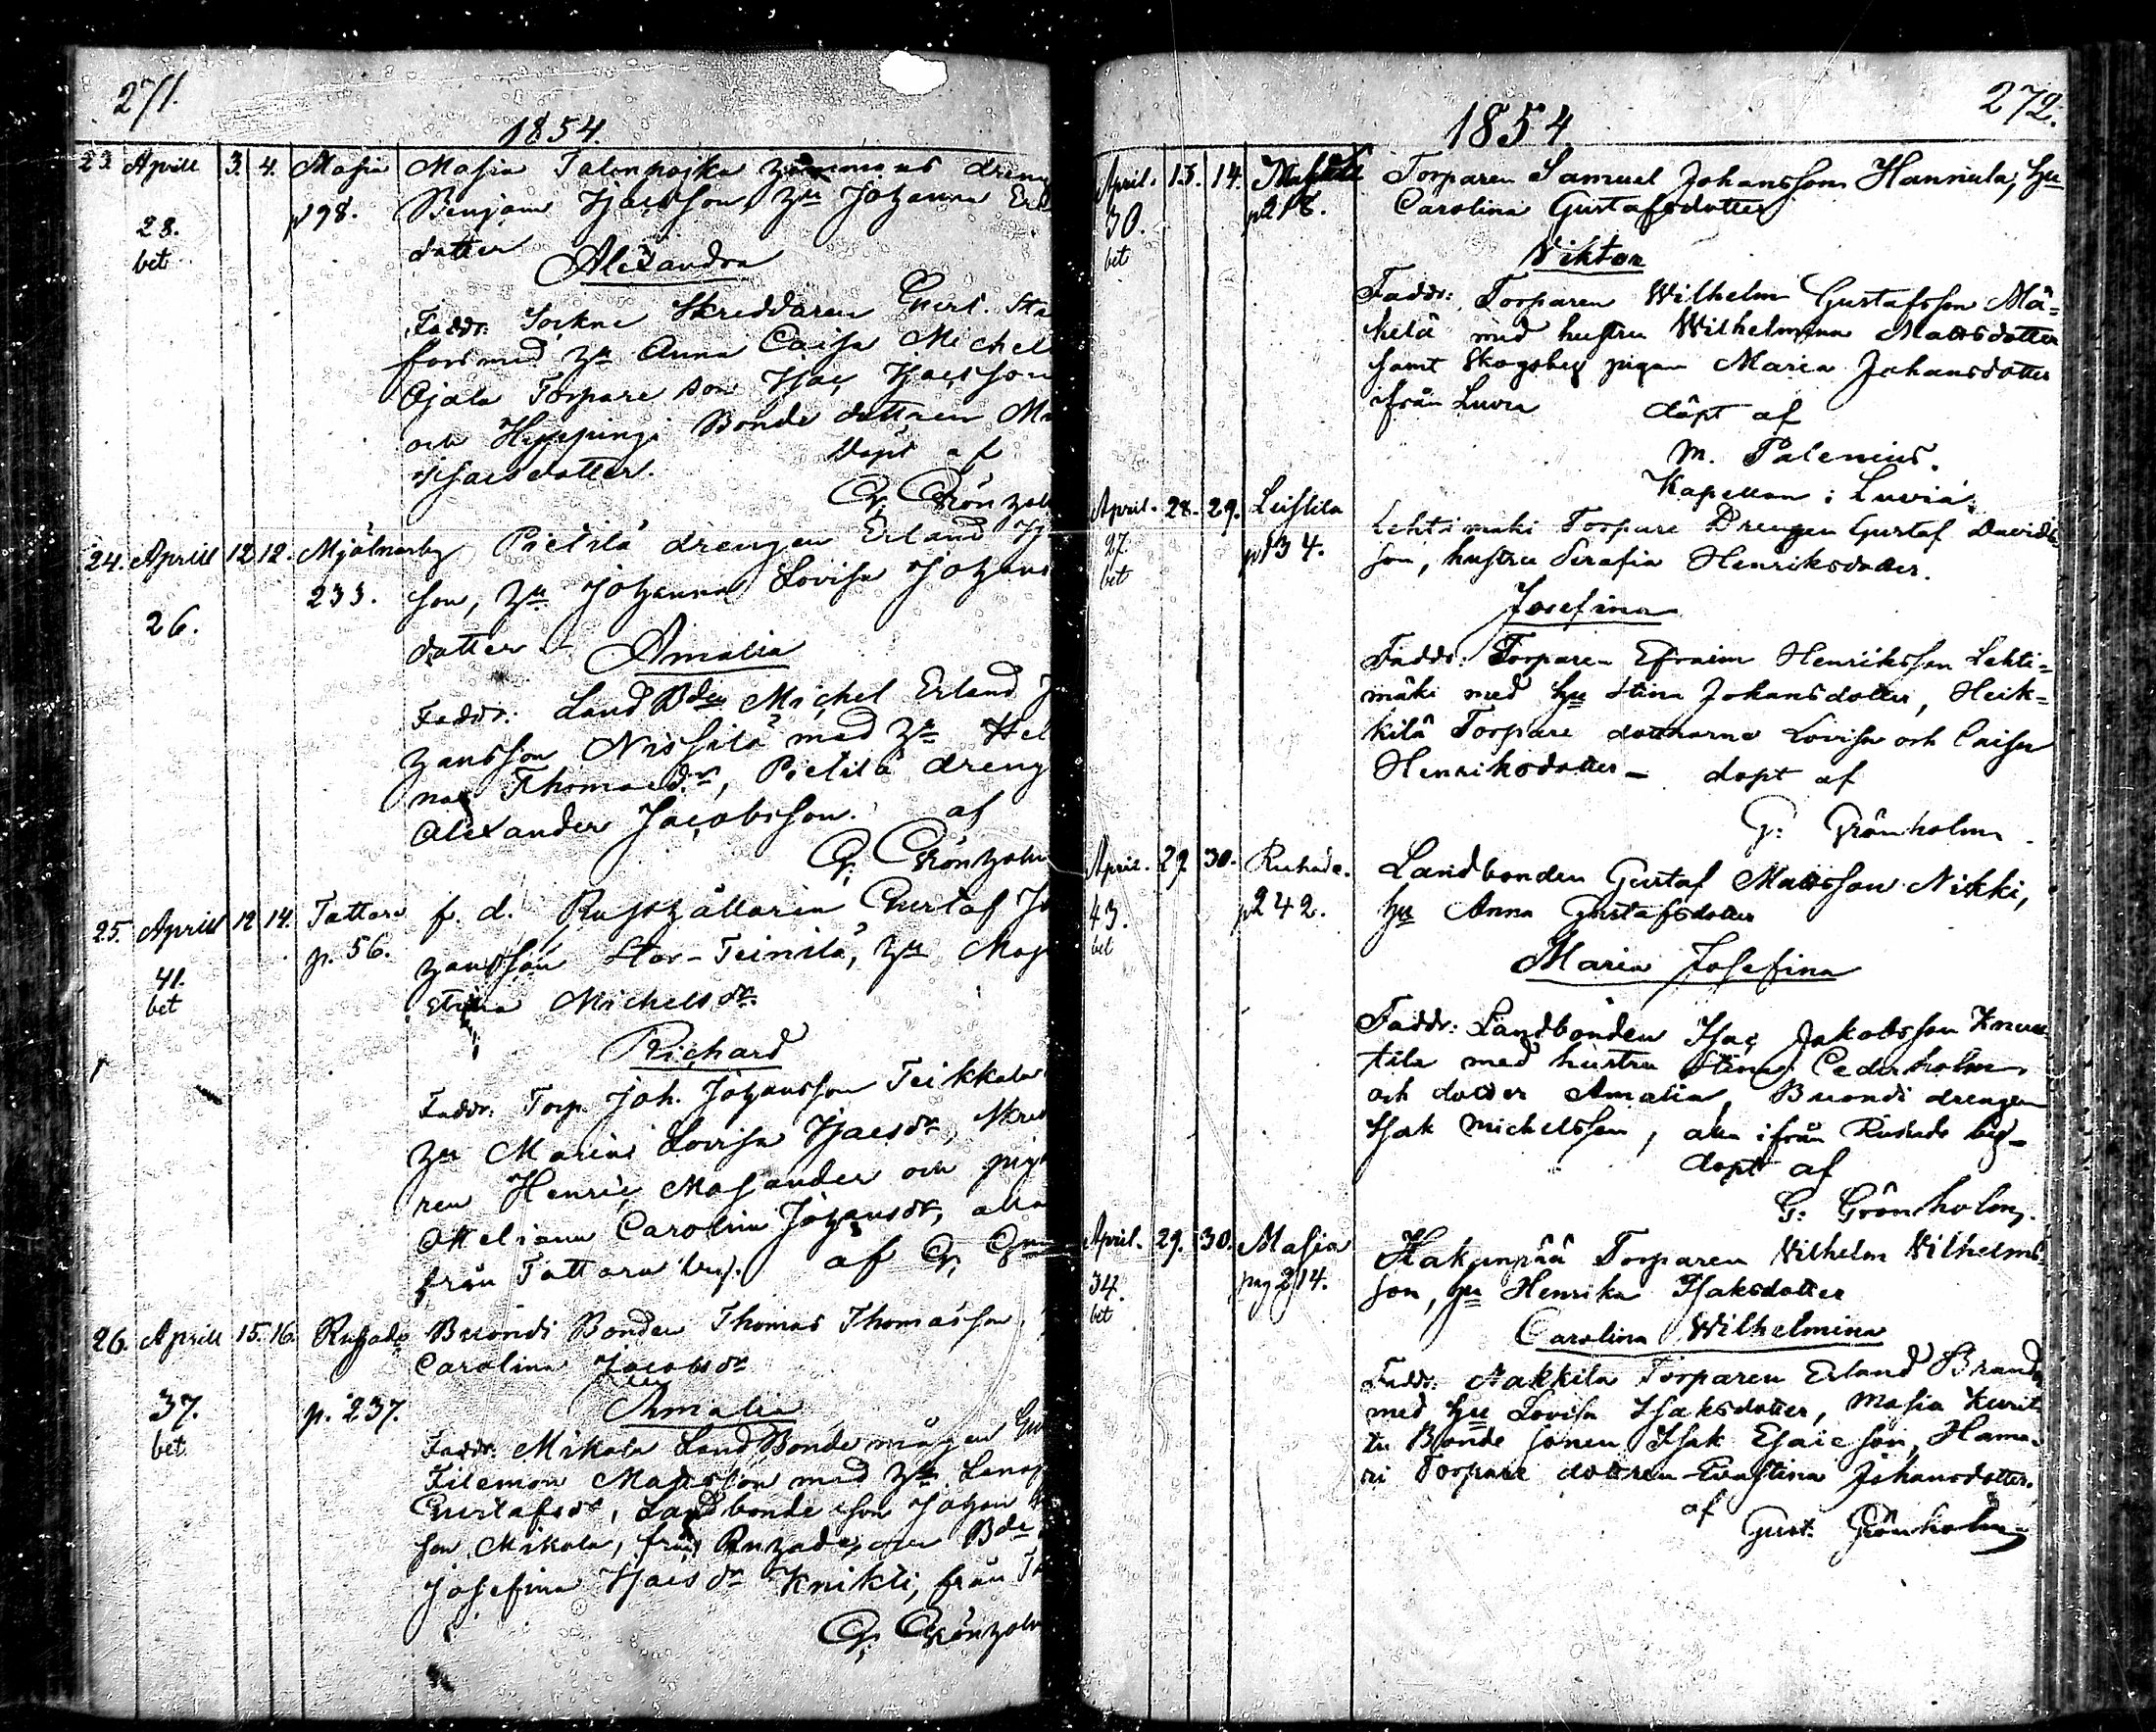 271.
1854.
23. Aprill 3. 4. Masia Masia Talonpojka dreng
p 98. Benjam Isacsson, hu Johanna Erl
28. dotter
bet Alexandra
Faddr: Sockne Skreddaren Gust. Sta
fors med hu Anna Caisa Michel
Ojala Torpare son Isac Isacsson
och Hyppingi Bonde dottren Ma
Isacsdotter. döpt af
G. Grönholm
24. Aprill 12 12. Mjälnarby Pietilä drengen Erland
233. son, hu Johanna Lovisa Johans
26. dotter
Amalia
Faddr: Land Bden Michel Erland J
hansson Nissilä med hu Hel
na Thomasdr, Pietilä dreng
Alexander Jacobsson. af
G. Grönholm
25. Aprill 12 14. Tattara f. d. Rusthållarin Gustaf Jo
p. 56. hansson Stor-Teinilä, hu Maj
41. Stina Michelsdr
bet
Richard
Faddr: Torp. Joh. Johansson Teikkala
hu Maria Lovisa Isacsdr, Skred
ren Henric Masander och pig
Otteliana Carolina Johansdr, alla
från Tattara by. af G. Grön
26. Aprill 15. 16. Ruhade Buondi Bonden Thomas Thomasson,
Carolina Jacobsdr
37. p. 237. Amalia
bet Faddr: Mikola Land Bonde mågen Gu
Filemon Matsson med hu Lena
Gustafsdr, Landbonde son Johan
son Mikola, från Ruhade, och Bde
Josefina Isacsdr Knikti, från Ta
G. Grönholm
272.
1854
April. 13. 14. Torparen Samuel Johansson Hannula, hu
30. p218. Carolina Gustafsdotter
bet
Viktor
Faddr: Torparen Wilhelm Gustafsson Mä=
kelä med hustru Wilhelmina Mattsdotter
samt Skogsby pigan Maria Johansdotter
ifrån Luvia döpt af
M. Palenius.
Kapellan i Luvia.
April. 28. 29. Leistila Lehtimäki Torpare Drengen Gustaf Davids
27. p134. son, hustru Serafia Henriksdotter.
bet
Josefina
Faddr: Torparen Efraim Henriksson Lehti=
mäki med hu Stina Johansdotter, Heik=
kilä Torpare döttrarna Lovisa och Caisa
Henriksdotter – döpt af
G. Grönholm
April. 29. 30. Ruhade. Landbonden Gustaf Mattsson Nikki,
43. p242. hu Anna Gustafsdotter
bet
Maria Josefina
Faddr: Landbonden Isac Jakobsson Knuu
tila med hustru Stina Cederholm
och dotter Amalia, Buondi drengen
Isak Michelsson, alla ifrån Ruhade by –
döpt af
G. Grönholm.
April. 29. 30. Masia Hakanpää Torparen Vilhelm Vilhelms
34. pag 214. son, hu Henrika Isaksdotter
bet
Carolina Wilhelmina
Faddr: Nakkila Torparen Erland Brand
med hu Lovisa Isaksdotter, Masia Kurit
tu Bonde sonen Isak Esaieson, Hama
ri Torpare dottren Evastina Johansdotter.
af
Gust. Grönholm